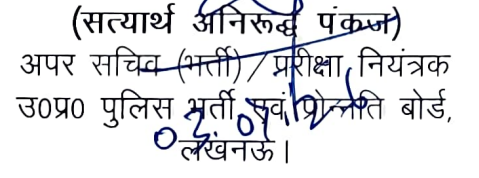 (सत्यार्थ अनिरूद्ध पंकज)
अपर सचिव (भर्ती) / परीक्षा नियंत्रक
उ0प्र0 पुलिस भर्ती एवं प्रोन्नति बोर्ड,
लखनऊ।